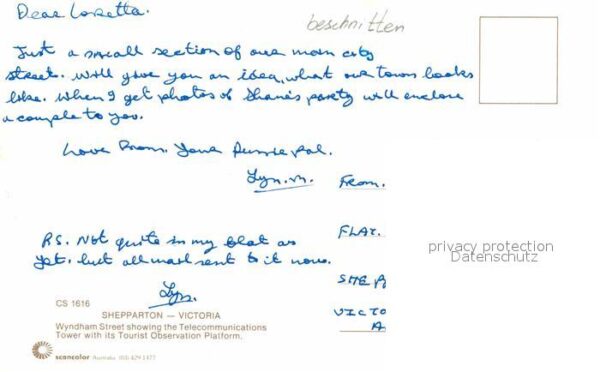 Dear Loretta.
beschnitten
Just a small section of our main city
street. Will give you an idea, what our town looks
like. When I get photos of Shane's party will enclose
a couple to you.
Love From. Your Aussie pal.
Lyn. M.
From.
FLAT.
P.S. Not quite in my flat as
yet. but all mail sent to it now.
Lyn.
SHEP
VICTO
A
privacy protection
Datenschutz
CS 1616
SHEPPARTON — VICTORIA
Wyndham Street showing the Telecommunications
Tower with its Tourist Observation Platform.
scancolor Australia